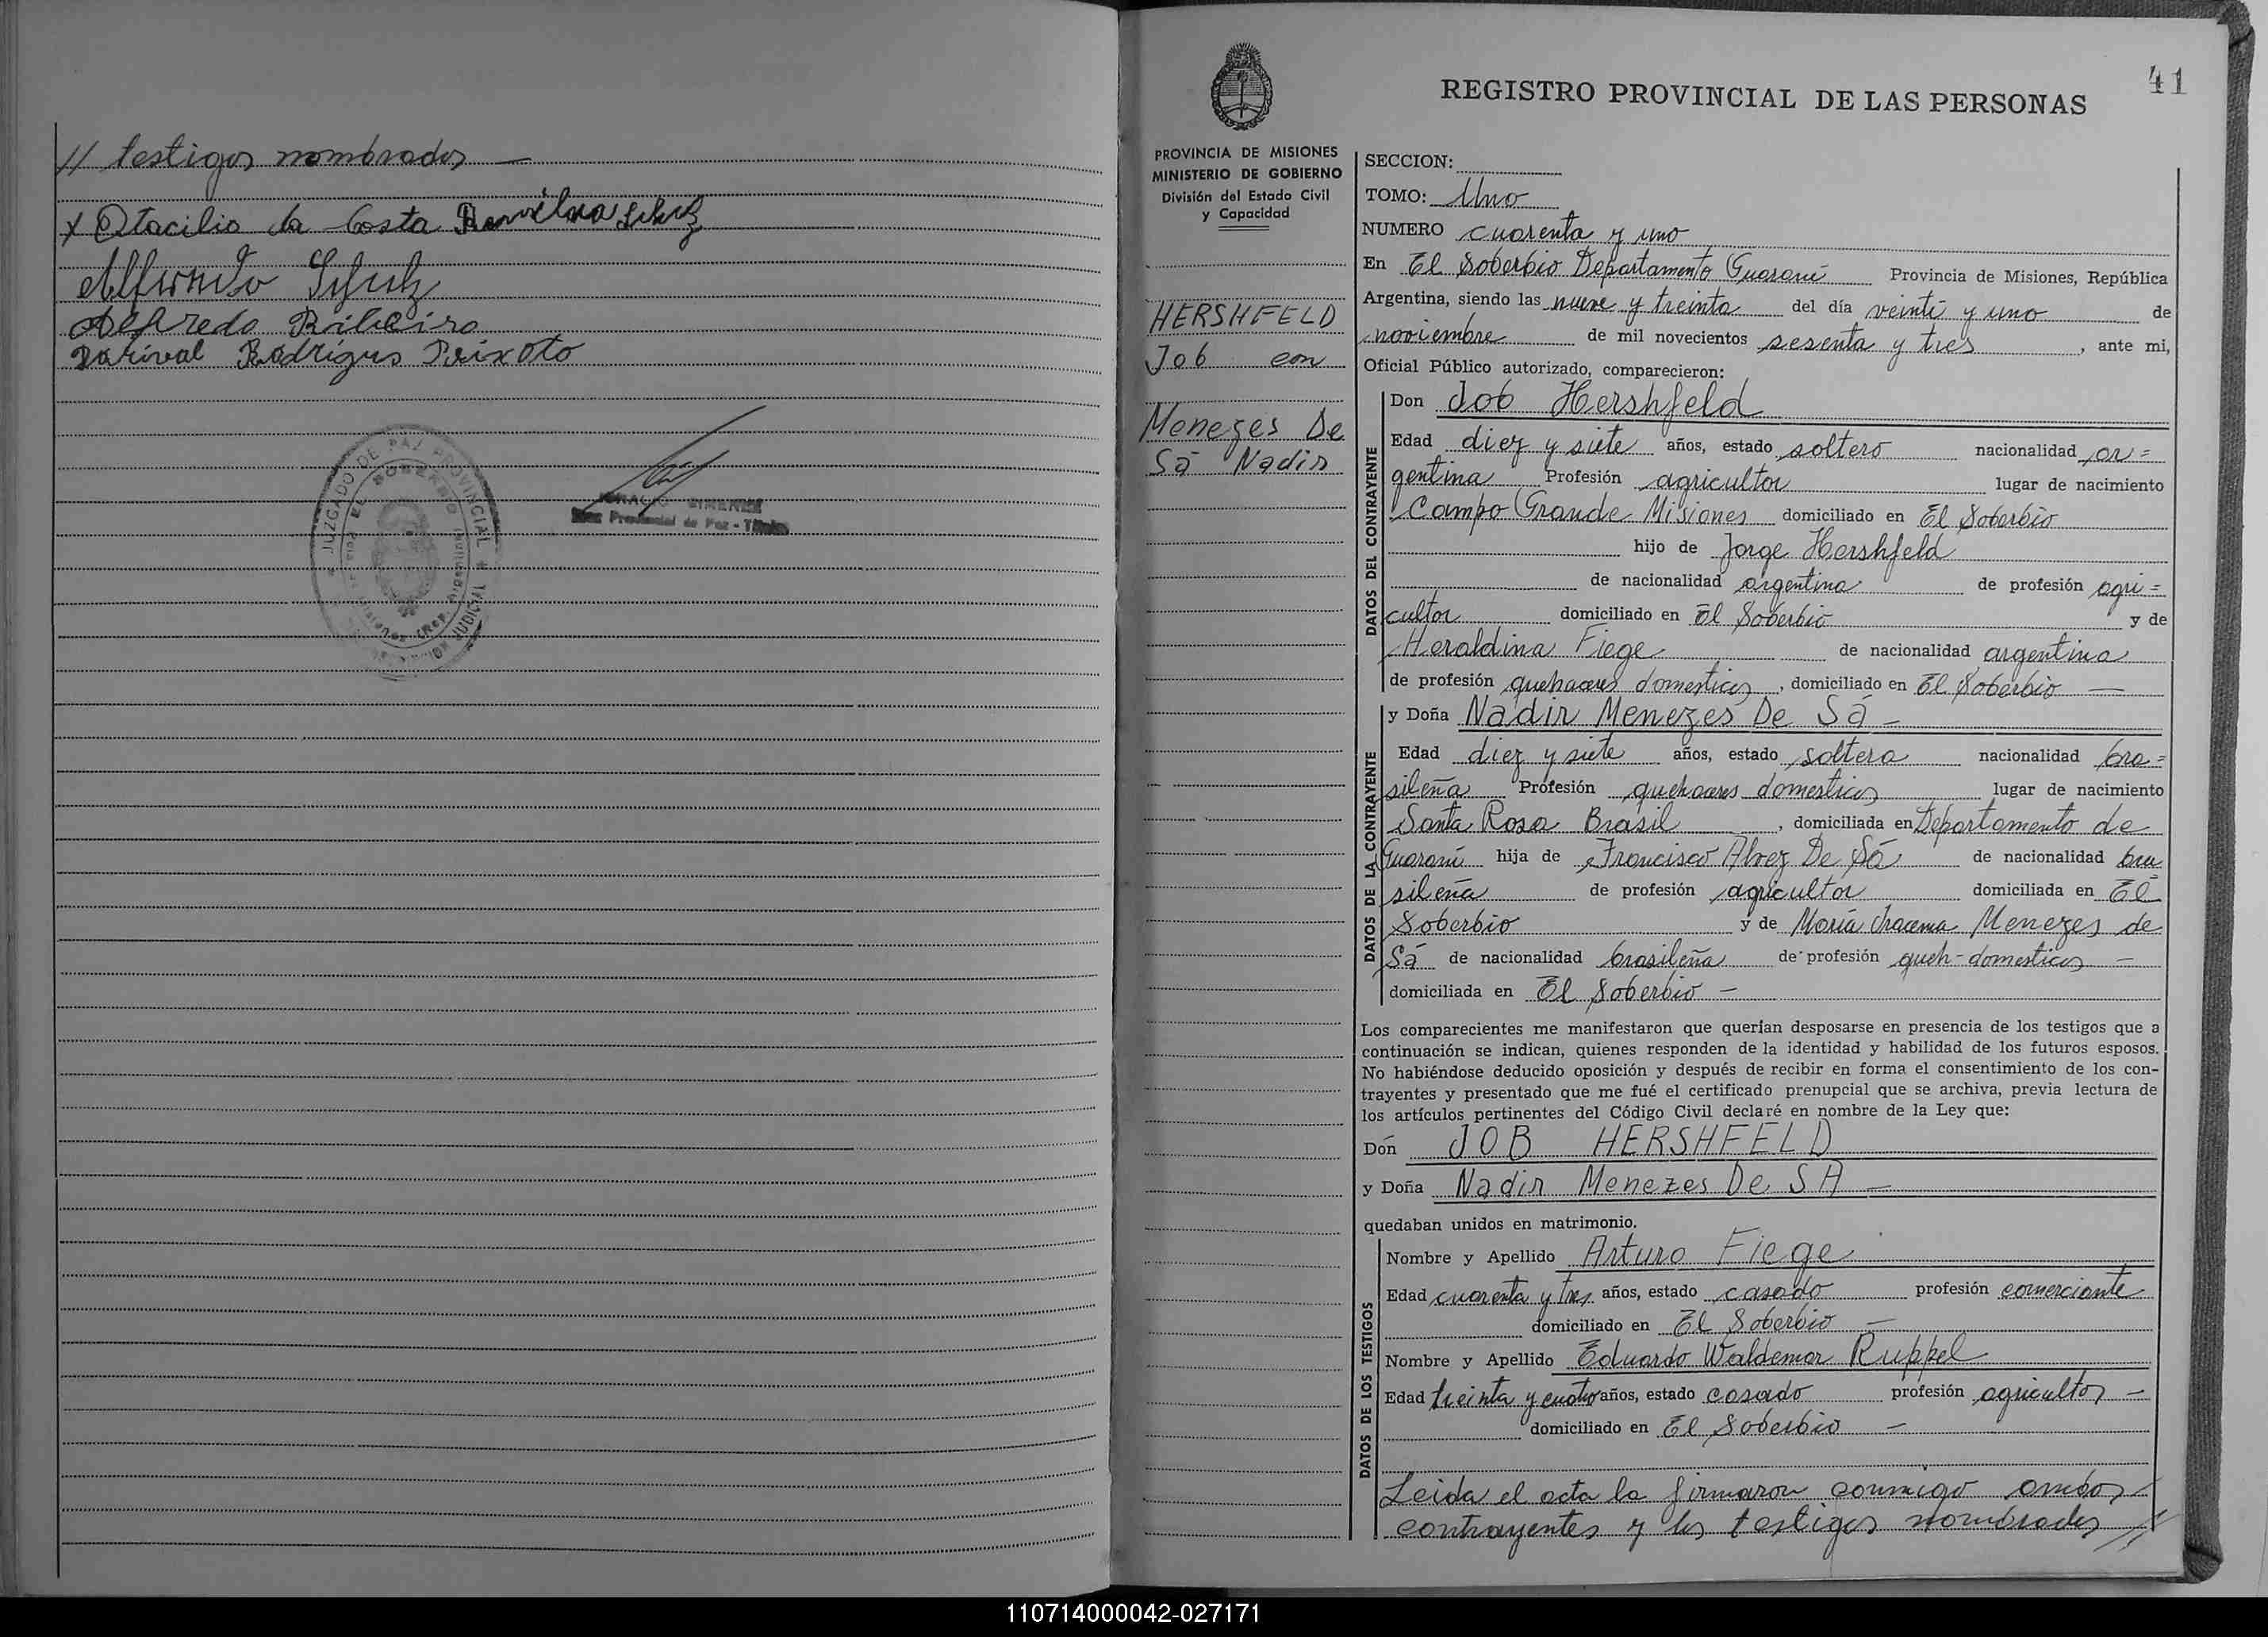 // testigos nombrados —
x Otacilio da Costa Romilna Schuz
Alfredo Ribeiro
Rodrigues Peixoto
JUZGADO DE PAZ PROVINCIAL
EL SOBERBIO
JUDICIAL
Juez Provincial de Paz - Titular
41
REGISTRO PROVINCIAL DE LAS PERSONAS
PROVINCIA DE MISIONES
MINISTERIO DE GOBIERNO
División del Estado Civil
y Capacidad
HERSHFELD
Job con
Menezes De
Sá Nadir
SECCION:
TOMO: Uno
NUMERO cuarenta y uno
En El Soberbio Departamento Guaraní Provincia de Misiones, República
Argentina, siendo las nueve y treinta del día veinti y uno de
noviembre de mil novecientos sesenta y tres, ante mi,
Oficial Público autorizado, comparecieron:
DATOS DEL CONTRAYENTE
Don Job Hershfeld
Edad diez y siete años, estado soltero nacionalidad ar=
gentina Profesión agricultor lugar de nacimiento
Campo Grande Misiones domiciliado en El Soberbio
hijo de Jorge Hershfeld
de nacionalidad argentina de profesión agri=
cultor domiciliado en El Soberbio y de
Heraldina Fiege de nacionalidad argentina
de profesión quehaceres domesticos, domiciliado en El Soberbio —
DATOS DE LA CONTRAYENTE
y Doña Nadir Menezes De Sá —
Edad diez y siete años, estado soltera nacionalidad bra=
sileña Profesión quehaceres domesticos lugar de nacimiento
Santa Rosa Brasil, domiciliada en Departamento de
Guaraní hija de Francisco Alvez De Sá de nacionalidad bra
sileña de profesión agricultor domiciliada en El
Soberbio y de María Iracema Menezes de
Sá de nacionalidad brasileña de profesión queh-domesticos —
domiciliada en El Soberbio —
Los comparecientes me manifestaron que querían desposarse en presencia de los testigos que a
continuación se indican, quienes responden de la identidad y habilidad de los futuros esposos.
No habiéndose deducido oposición y después de recibir en forma el consentimiento de los con-
trayentes y presentado que me fué el certificado prenupcial que se archiva, previa lectura de
los artículos pertinentes del Código Civil declaré en nombre de la Ley que:
Dón JOB HERSHFELD
y Doña Nadir Menezes De SA —
quedaban unidos en matrimonio.
DATOS DE LOS TESTIGOS
Nombre y Apellido Arturo Fiege
Edad cuarenta y tres años, estado casado profesión comerciante
domiciliado en El Soberbio —
Nombre y Apellido Eduardo Waldemar Ruppel
Edad treinta y cuatro años, estado casado profesión agricultor —
domiciliado en El Soberbio —
Leida el acta la firmaron conmigo ambos
contrayentes y los testigos nombrados //
110714000042-027171